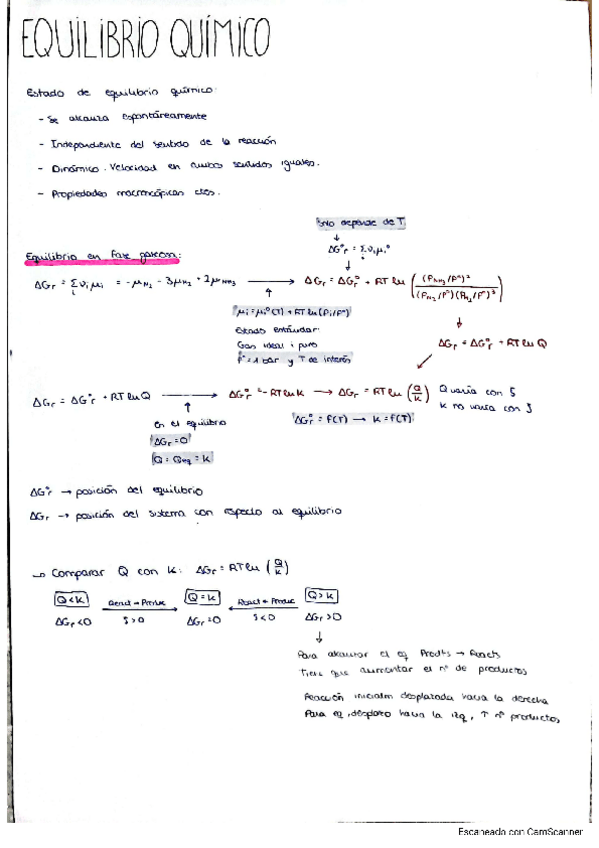 EQUILIBRIO QUÍMICO
Estado de equilibrio químico:
- Se alcanza espontáneamente
- Independiente del sentido de la reacción
- Dinámico. Velocidad en ambos sentidos iguales.
- Propiedades macroscópicas ctes.
Solo depende de T
↓
ΔG°r = Σ νi μi°
↓
Equilibrio en fase gaseosa:
ΔGr = Σ νi μi = -μN2 - 3μH2 + 2μNH3 → ΔGr = ΔG°r + RT ln ( (PNH3/P°)² / (PN2/P°)(PH2/P°)³ )
μi = μi°(T) + RT ln (Pi/P°)
Estado estándar:
Gas ideal i puro
P° = 1 bar y T de interés
ΔGr = ΔG°r + RT ln Q
ΔGr = ΔG°r + RT ln Q → ΔG°r = -RT ln K → ΔGr = RT ln (Q/K) Q varía con ξ
K no varía con ξ
En el equilibrio
ΔGr = 0
Q = Qeq = K
ΔG°r = f(T) → K = f(T)
ΔG°r → posición del equilibrio
ΔGr → posición del sistema con respecto al equilibrio
→ Comparar Q con K: ΔGr = RT ln (Q/K)
Q<K React → Produc Q=K React ← Produc Q>K
ΔGr<0 ξ>0 ΔGr=0 ξ<0 ΔGr>0
↓
Para alcanzar el eq Prodts → Reacts
Tiene que aumentar el nº de productos
Reacción inicialm desplazada hacia la derecha
Para eq, desplazo hacia la izq, ↑ nº productos
Escaneado con CamScanner